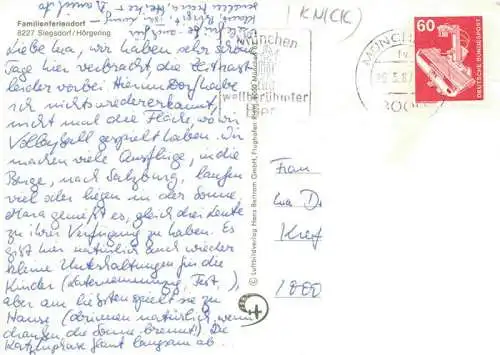 Familienferiendorf
8227 Siegsdorf/Hörgering
(KNICK)
Liebe Ina, wir haben sehr schöne
Tage hier verbracht, die Zeit rast
leider vorbei. Hier im Dorf habe
ich nichts wiedererkannt,
nicht mal die Fläche, wo wir
Volleyball gespielt haben. Wir
machen viele Ausflüge, in die
Berge, nach Salzburg, laufen
viel oder liegen in der Sonne.
Mara genießt es, gleich drei Leute
zu ihrer Verfügung zu haben. Es
gibt hier natürlich auch wieder
kleine Unterhaltungen für die
Kinder (Laternenumzug, Fest, ),
aber am liebsten spielt sie zu
Hause (drinnen natürlich, wenn
draußen die Sonne brennt). Die
flaut langsam ab.
© Luftbildverlag Hans Bertram GmbH, Flughafen 8000 München
München
weltberühmter
Bier
MÜNCHEN
8000
60
DEUTSCHE BUNDESPOST
Frau
Ina D.
Kref
1000